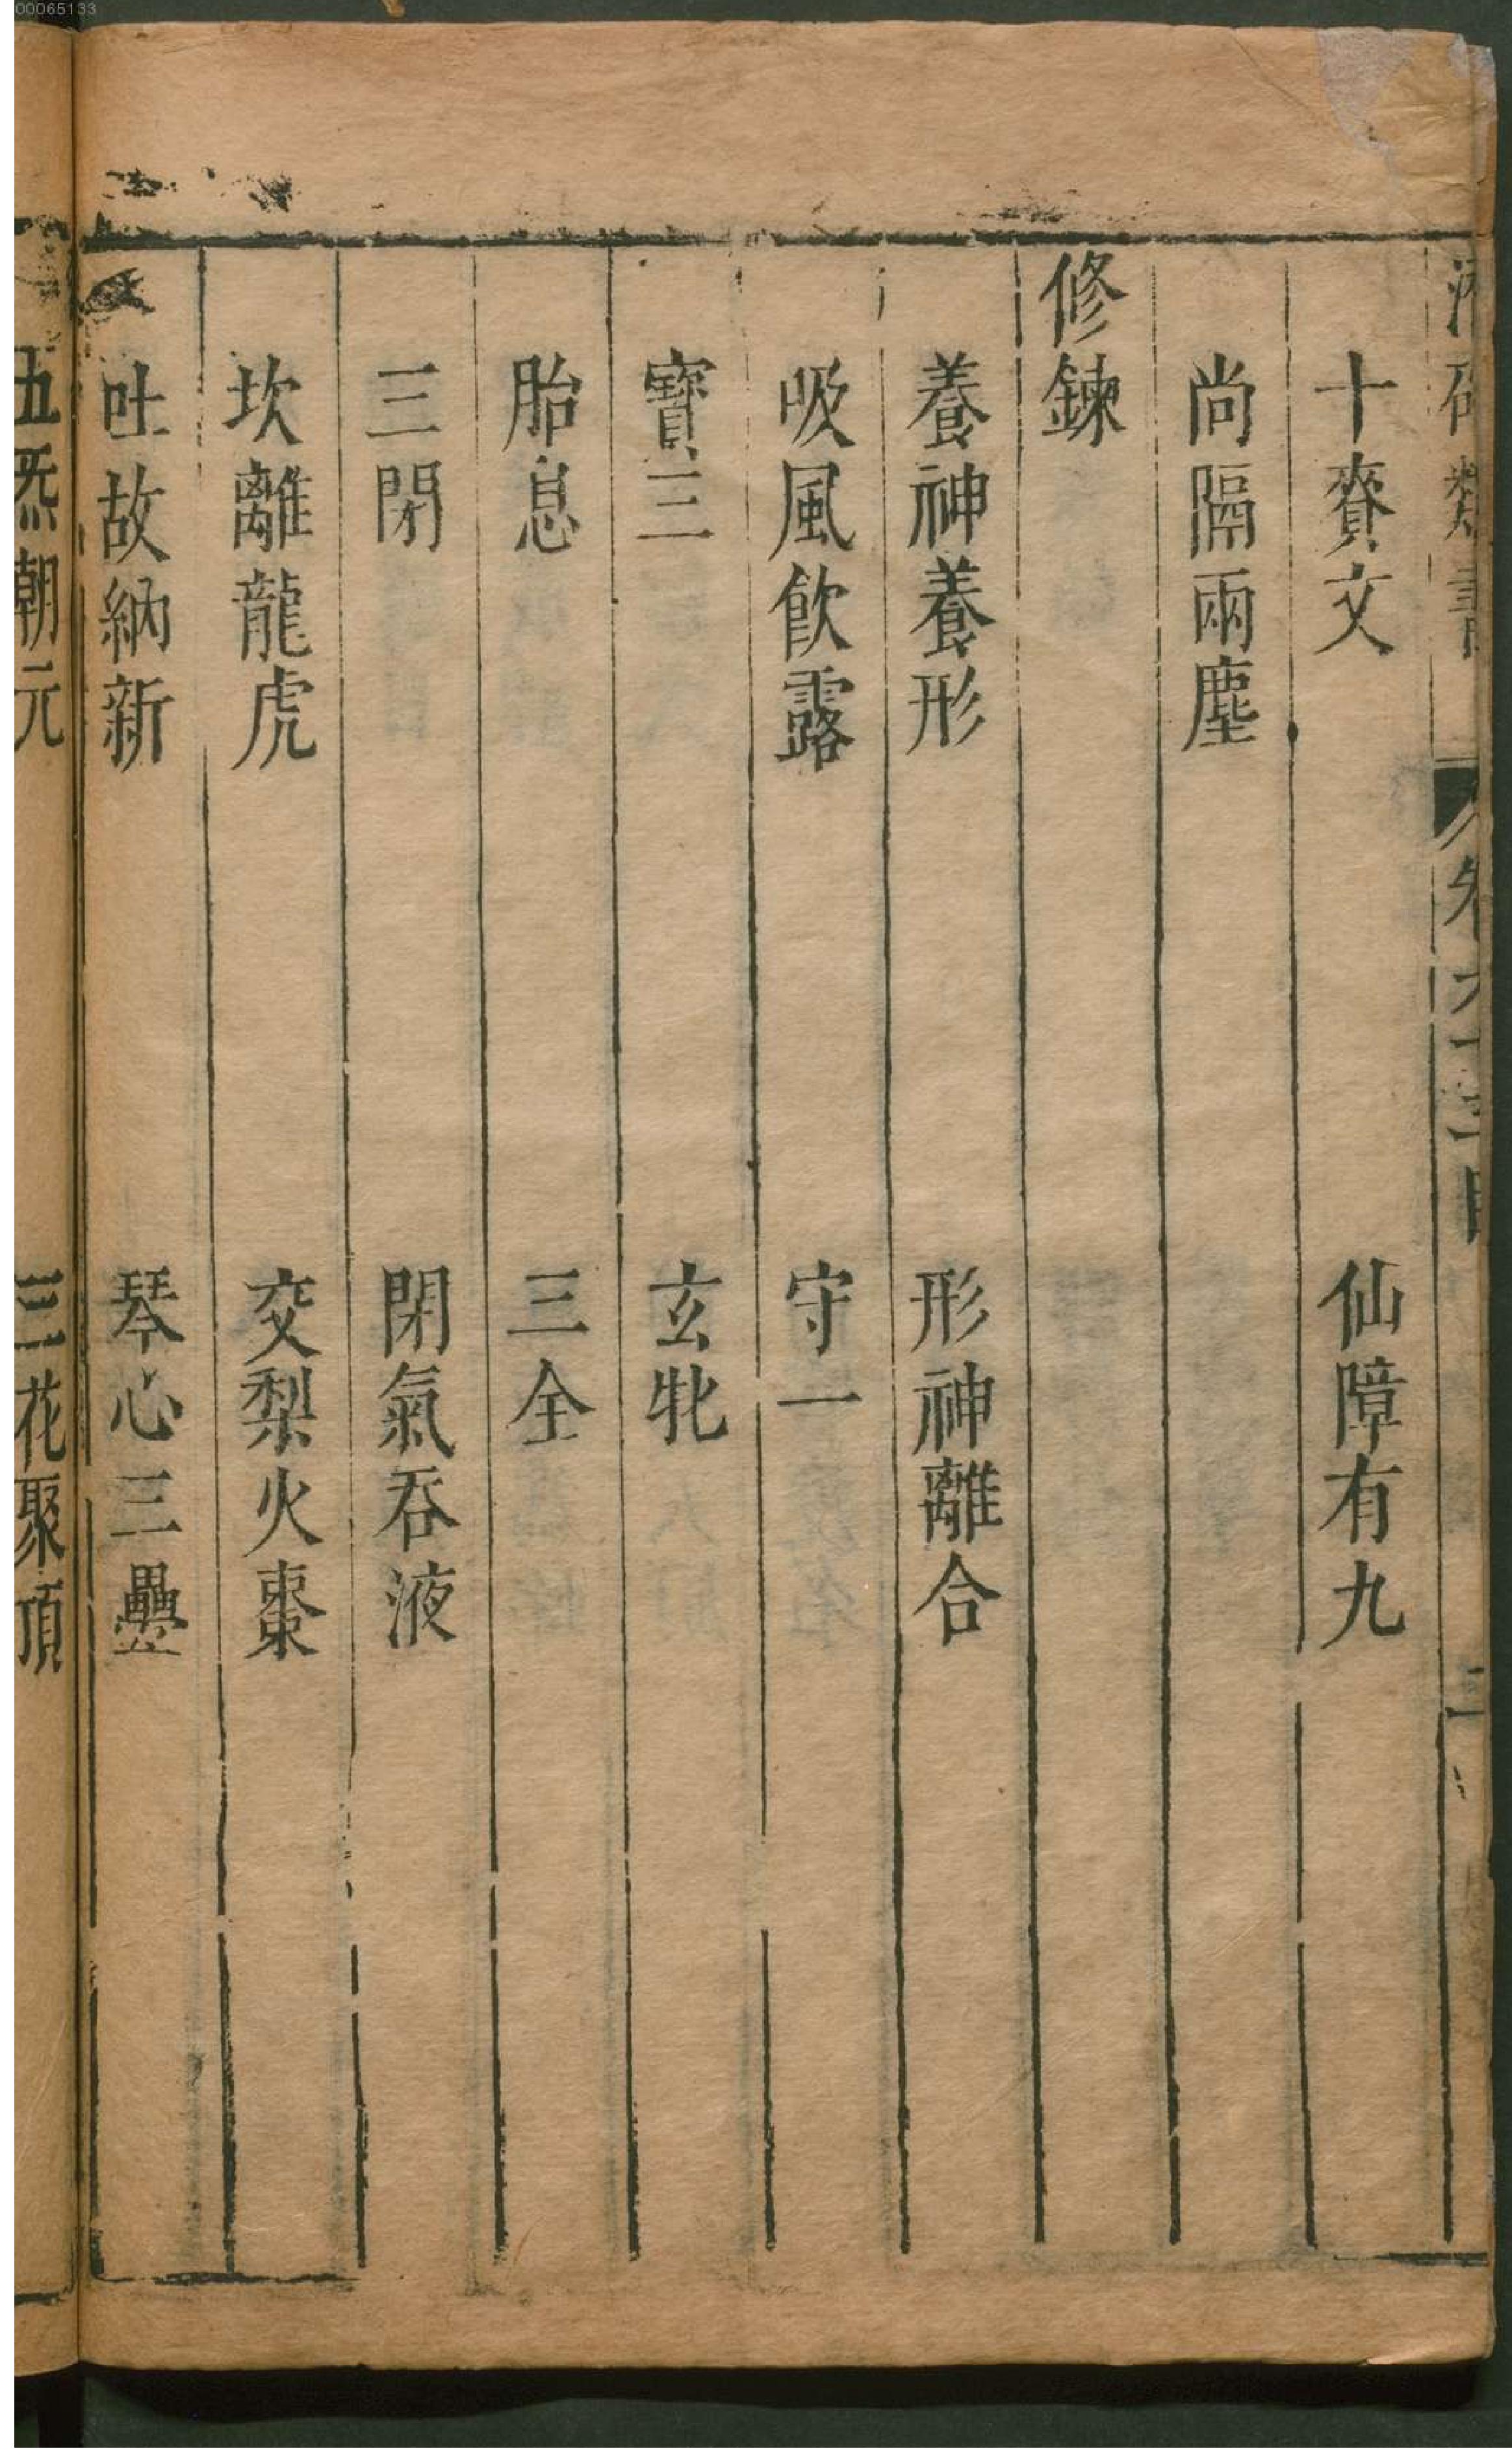 00065133
類書
十賚文 仙障有九
尚隔兩塵
修鍊
養神養形 形神離合
吸風飲露 守一
寶三 玄牝
胎息 三全
三閉 閉氣吞液
坎離龍虎 交梨火棗
吐故納新 琴心三疊
五炁朝元 三花聚頂